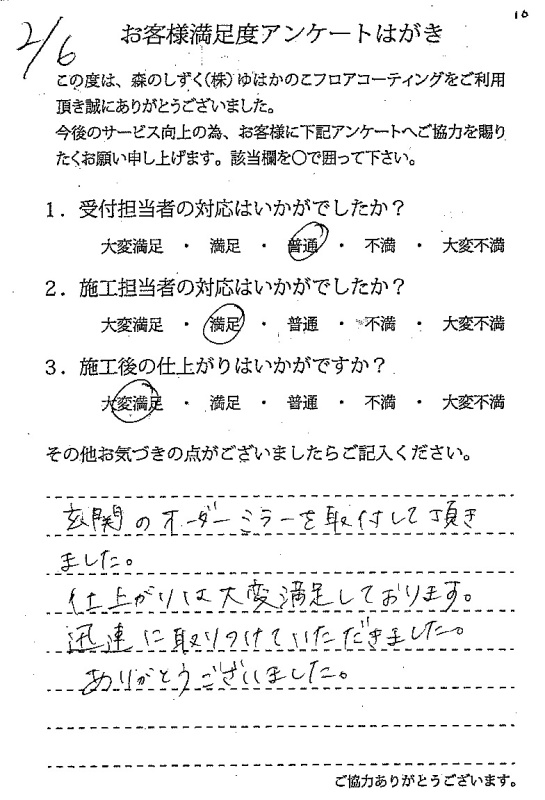 10
2/6
お客様満足度アンケートはがき
この度は、森のしずく(株)ゆはかのこフロアコーティングをご利用
頂き誠にありがとうございました。
今後のサービス向上の為、お客様に下記アンケートへご協力を賜り
たくお願い申し上げます。該当欄を〇で囲って下さい。
1．受付担当者の対応はいかがでしたか？
大変満足 ・ 満足 ・ 普通 ・ 不満 ・ 大変不満
2．施工担当者の対応はいかがでしたか？
大変満足 ・ 満足 ・ 普通 ・ 不満 ・ 大変不満
3．施工後の仕上がりはいかがですか？
大変満足 ・ 満足 ・ 普通 ・ 不満 ・ 大変不満
その他お気づきの点がございましたらご記入ください。
玄関のオーダーミラーを取付して頂き
ました。
仕上がりは大変満足しております。
迅速に取りつけていただきました。
ありがとうございました。
ご協力ありがとうございます。